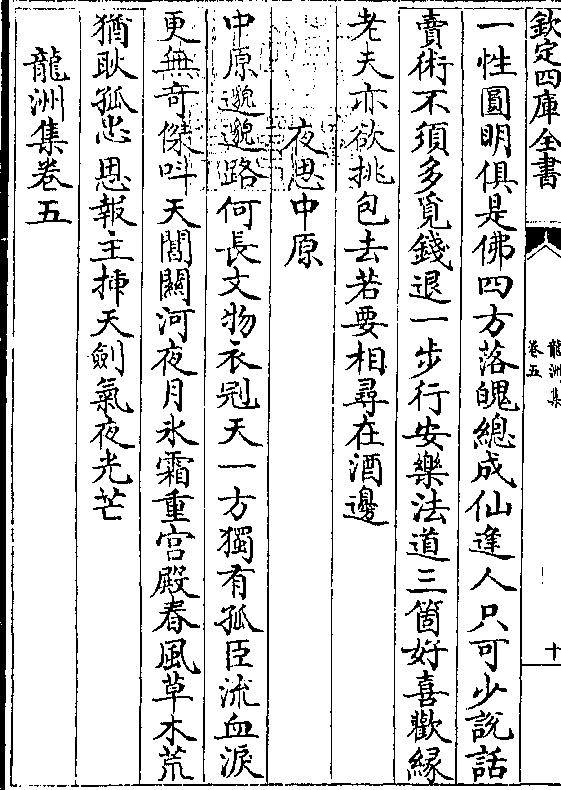 欽定四庫全書
龍洲集
卷五
十
一性圓明俱是佛四方落魄總成仙逢人只可少說話
賣術不須多覓錢退一步行安樂法道三箇好喜歡緣
老夫亦欲挑包去若要相尋在酒邊
夜思中原
中原邈邈路何長文物衣冠天一方獨有孤臣流血淚
更無奇傑呌天閽關河夜月氷霜重宫殿春風草木荒
猶耿孤忠思報主揷天劍氣夜光芒
龍洲集卷五